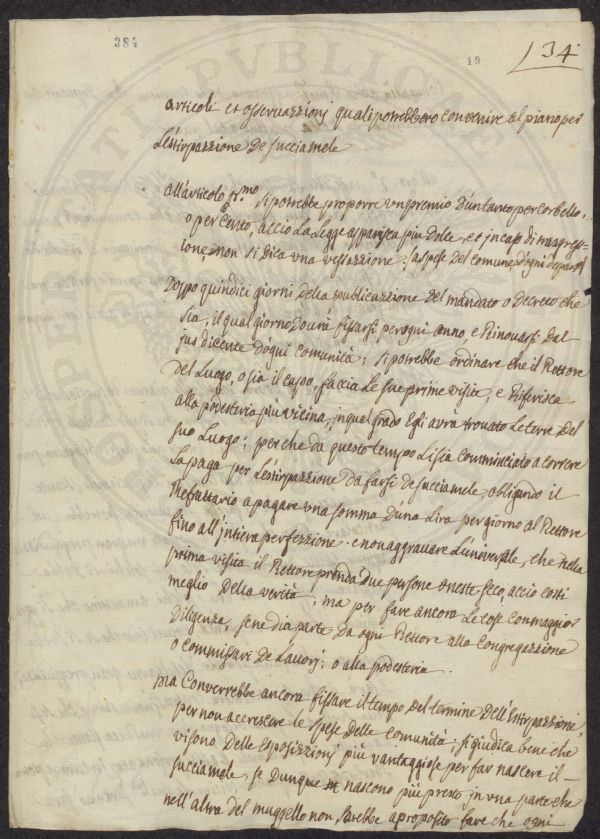 384
19
134
Articoli et osservazzioni quali potrebbero convenire al piano per
L'estirpazzione De succiamele
All'articolo p.mo Si potrebbe proporre un premio D'un tanto per corbello,
o per Cento, acciò La Legge apparisca più Dolce, et in caso di trasgres-
sione, non si dica una vessazione: a spese Del comune d'ogni
Doppo quindici giorni della publicazzione Del mandato o Decreto che
sia, il qual giorno dovrà fissarsi per ogni anno, e Rinovarsi Dal
jus dicente d'ogni comunità; si potrebbe ordinare che il Rettore
Del Luogo, o sia il capo, faccia Le sue prime visite, e Riferisca
alla podesteria più vicina, in qual grado Egli avrà trovato Le terre Del
suo Luogo; perche da questo tempo Li sia Comminciato a correre
La paga per L'estirpazzione da farsi De succiamele, obligando il
Refrattario a pagare una somma d'una Lira per giorno al Rettore
fino all'intiera perfezzione: e non aggravare L'universale, che nella
prima visita il Rettore prenda Due persone oneste seco, acciò costi
meglio Della verità; ma per fare ancora Le cose con maggior
Diligenza, se ne dia parte da ogni Rettore alla Congregazzione
o commissari De Lavori; o alla podesteria.
ma Converrebbe ancora fissare il tempo del termine Dell'Estirpazzione,
per non accrescere le spese Delle Comunità; si giudica bene che
vi sono Delle Esposizzioni più vantaggiose per far nascere il
succiamele, se Dunque nascono più presto in una parte che
nell'altra del muggello non sarebbe a proposito fare che ogni